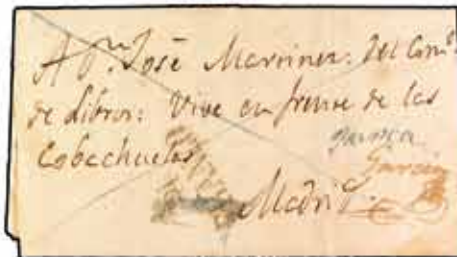 A Dn. José Martinez: Del Como.
de Libros: Vive en frente de las
Cobachuelas,
Garcia
Madrid.